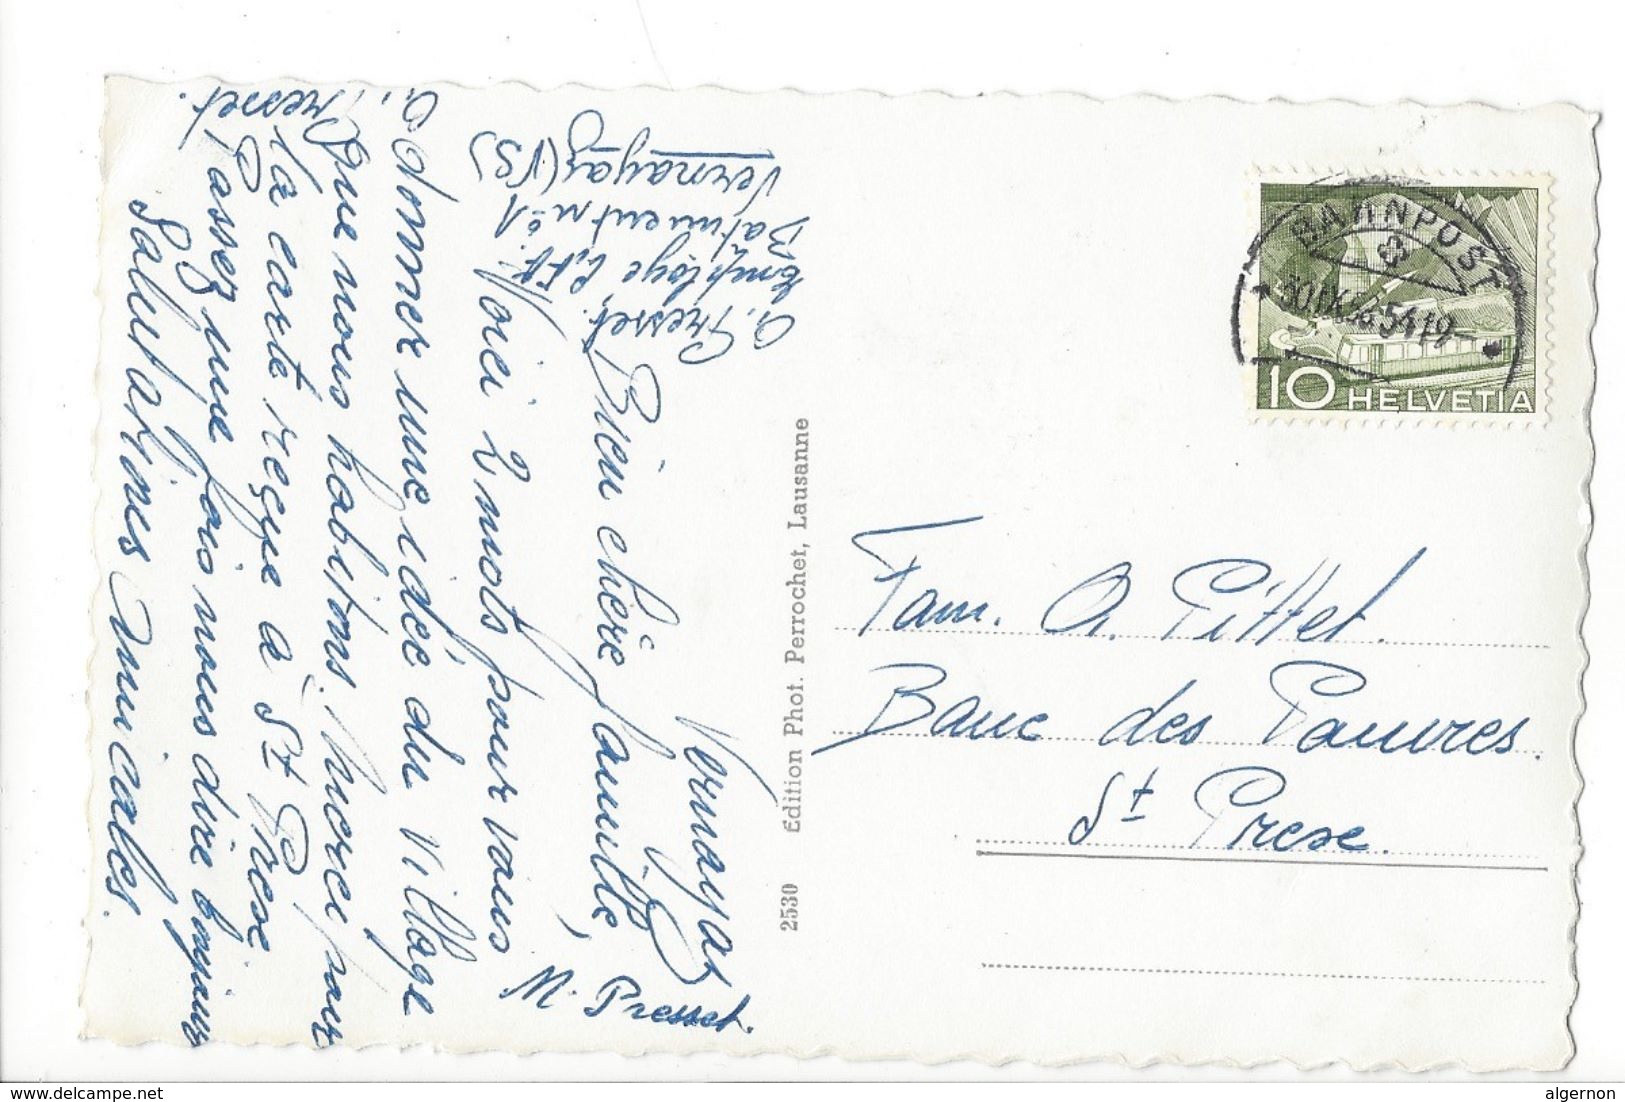 Vernayaz
Bien chère famille,
Voici 2 mots pour vous
donner une idée du village
que nous habitons. Merci pour
la carte reçue à St Prex
Passez une fois nous dire bonjour
Salutations Amicales.
A. Presset.
M. Presset.
A. Presset.
Employé CFF.
Batiment no 1
Vernayaz (VS)
2530 Édition Phot. Perrochet, Lausanne
BAHNPOST
5419
10 HELVETIA
Fam. A. Pittet.
Banc des Pauvres.
St Prex.
delcampe.net
algernon